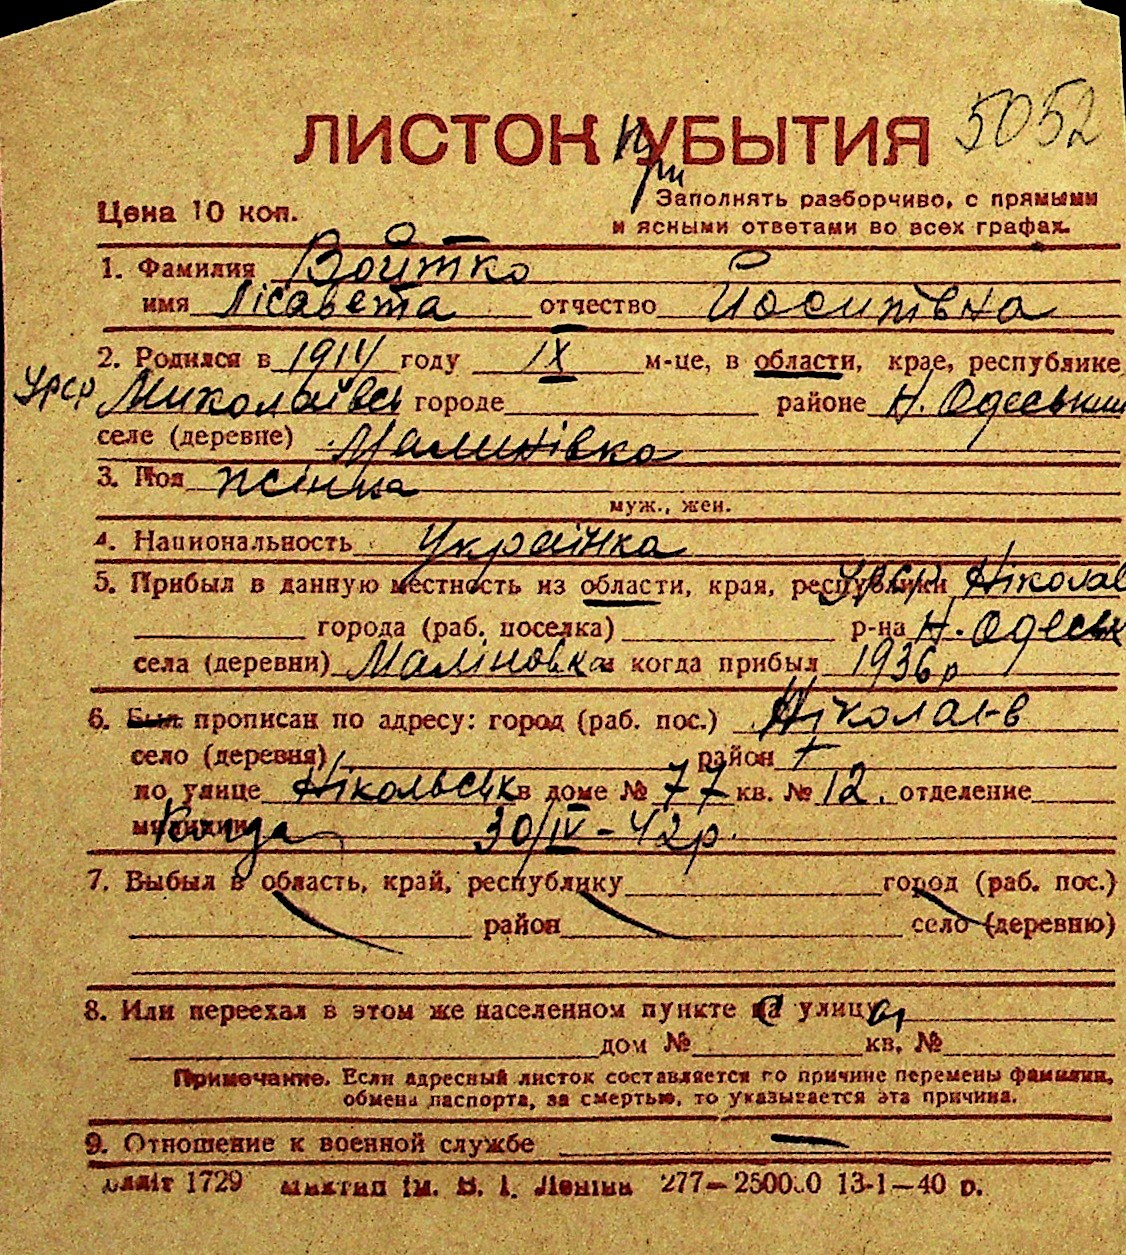 5052
ЛИСТОК при УБЫТИЯ
Цена 10 коп.
Заполнять разборчиво, с прямыми
и ясными ответами во всех графах.
1. Фамилия Войтко
имя Лісавета отчество Йосипівна
2. Родился в 1914 году IX м-це, в области, крае, республике
УРСР Миколаївсь городе районе Н. Одеський
селе (деревне) Малинівка
3. Пол жінка
муж., жен.
4. Национальность Українка
5. Прибыл в данную местность из области, края, республики УРСР Ніколаєв
города (раб. поселка) р-на Н. Одеськ
села (деревни) Маліновка и когда прибыл 1936 р
6. Был прописан по адресу: город (раб. пос.) Ніколаєв
село (деревня) район
по улице Нікольськ в доме № 77 кв. № 12. отделение
милиции Когда 30/IV - 42 р.
7. Выбыл в область, край, республику город (раб. пос.)
район село (деревню)
8. Или переехал в этом же населенном пункте с улицы
дом № кв. №
Примечание. Если адресный листок составляется по причине перемены фамилии,
обмена паспорта, за смертью, то указывается эта причина.
9. Отношение к военной службе —
1729 ім. В. І. Леніна 277—250000 13-1—40 р.